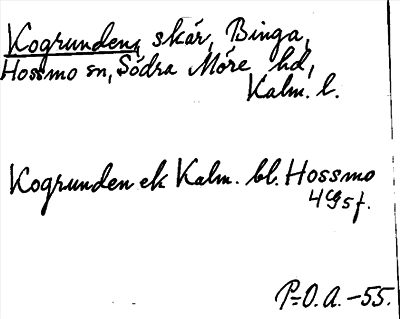 Kogrunden, skär, Binga,
Hossmo sn, Södra Möre hd,
Kalm. l.
Kogrunden ek Kalm. bl. Hossmo
4G5f.
P=O.A.-55.